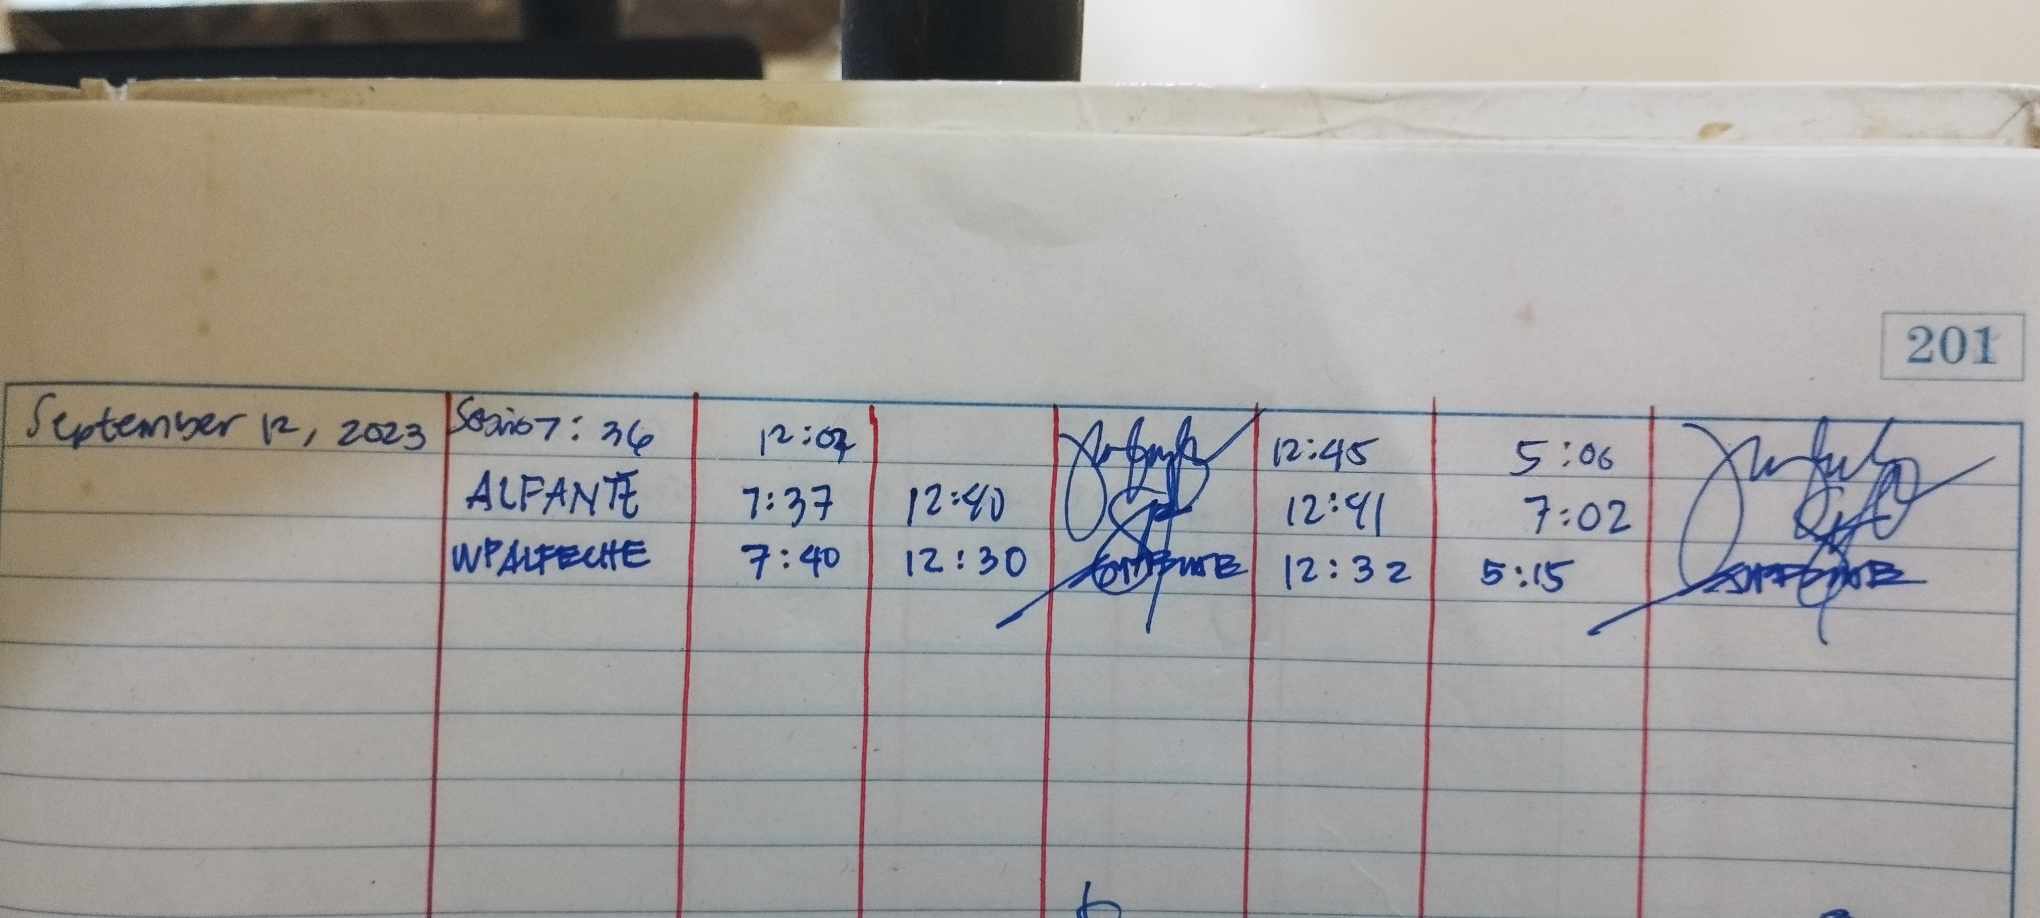 201
September 12, 2023 7:36 12:02 12:45 5:06
ALFANTE 7:37 12:40 12:41 7:02
WPALFECHE 7:40 12:30 12:32 5:15